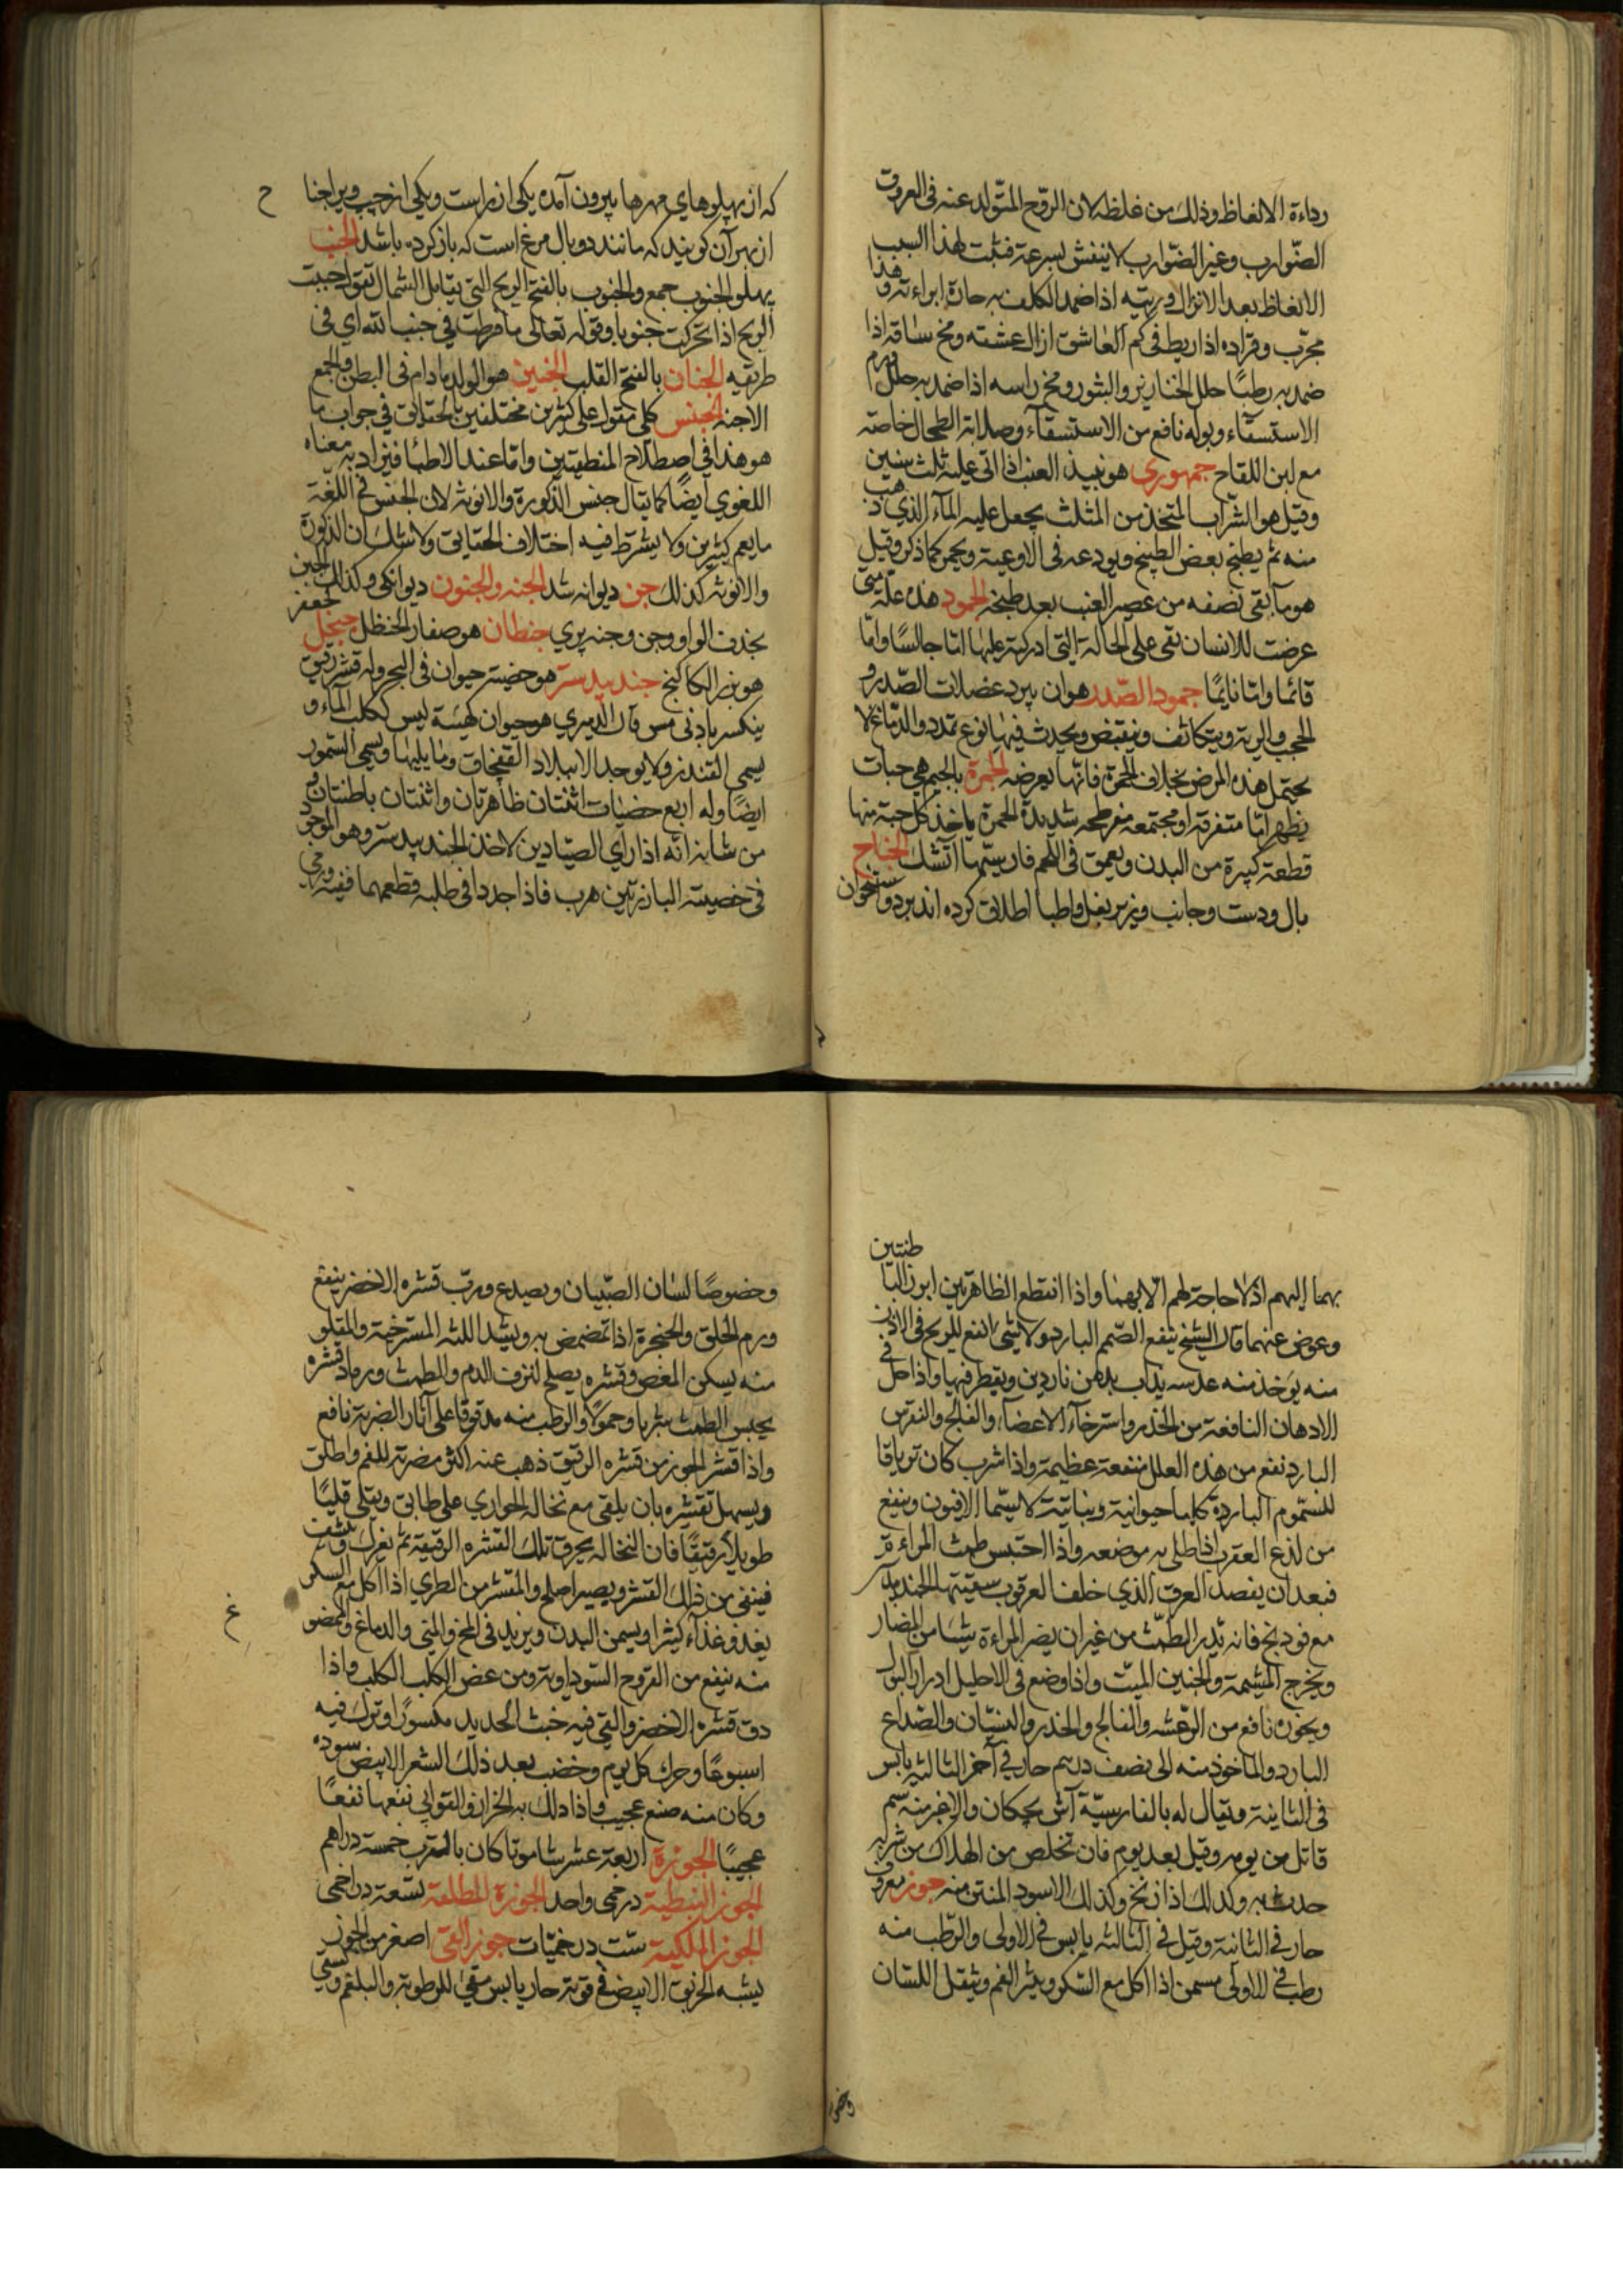 رداءة الالفاظ وذلك من غلظه لان الروح المتولد عنه فى العروق
الضوارب وغير الضوارب لا ينفش بسرعة فثبت لهذا السبب
الانعاظ بعد الانزال وريته اذا ضمد الكلف به حارة ابراءته وهذا
مجرّب وقراده اذا ربط فى كم العاشق ازال عشقه ومخ ساقه اذا
ضمد به رطبًا حلل الخنازير والبثور ومخ راسه اذا ضمد به حلل ورم
الاستسقاء وبوله نافع من الاستسقاء وصلابة الطحال خاصة
مع لبن اللقاح جمهورى هو نبيذ العنب اذا اتى عليه ثلث سنين
وقيل هو الشراب المتخذ من المثلث يجعل عليه الماء الذي ذهب
منه ثم يطبخ بعض الطبخ ويودعه فى الاوعية ويخمر كما ذكر وقيل
هو ما بقى نصفه من عصير العنب بعد طبخه الجمود هذه علة متى
عرضت للانسان بقى على الحالة التي ادركته عليها اما جالسًا واما
قائما واما نايمًا جمود الصدر هو ان يبرد عضلات الصدر و
الحجب والرية ويتكاثف وينقبض ويحدث فيها نوع تمدد والدماغ لا
يحتمل هذه المرض بخلاف الحمرة فانها يعرضه الجمرة بالجيم هي حبات
يظهر اما متفرقة او مجتمعة مفرطحة شديدة الحمرة ياخذ كل حبة منها
قطعة كبيرة من البدن ويعمق فى اللحم فارسيتها آتشك الجناح
بال ودست وجانب وزير بغل واطبا اطلاق كرده اند بر دو استخوان
كه از پهلوهاي مهرها بيرون آمده يكى از راست ويكى از چپ ويرا جنا
ح
از بهر آن كويند كه مانند دو بال مرغ است كه باز كرده باشد الجنب
پهلو الجنوب جمع والجنوب بالفتح الريح التي تقابل الشمال تقول جنبت
الريح اذا تحركت جنوبا وقوله تعالى ما فرطت في جنب الله اى فى
طريقه الجنان بالفتح القلب الجنين هو الولد مادام فى البطن والجمع
الاجنة الجنس كلى مقول على كثيرين مختلفين بالحقائق في جواب ما
هو هذا في اصطلاح المنطقيين واما عند الاطبا فيراد به معناه
اللغوي ايضًا كما يقال جنس الذكورة والانوثة لان الجنس فى اللغة
ما يعم كثيرين ولا يشترط فيه اختلاف الحقايق ولا شك ان الذكورة
والانوثة كذلك جن ديوانه شد الجنه والجنون ديوانكى وكذلك الجنن
بحذف الواو وجن وجنه پري جنطان هو صغار الحنظل جنجل كجعفر
هو بزر الكاكنج جند بيدستر هو خصية حيوان في البحر وله قشر رقيق
ينكسر بادنى مس قال الدميري هو حيوان كهيئة ليس ككلب الماء و
يسمى القندز ولا يوجد الا ببلاد القفجاق وما يليها ويسمى السمور
ايضًا وله اربع خصيات اثنتان ظاهرتان واثنتان باطنتان و
من شانه انه اذا راى الصيادين لاخذ الجند بيدستر وهو الموجود
فى خصيته البارزتين هرب فاذا جدوا فى طلبه قطعهما ففيه ورمى
بهما اليهم اذ لا حاجة لهم الا بهما واذا انقطع الظاهرتين ابرز الباطنتين
وعوض عنهما قال الشيخ ينفع الصمم البارد ولا شئ انفع للريح فى الاذن
منه يوخذ منه عدسه يذاب بدهن ناردين ويقطر فيها واذا حل في
الادهان النافعة من الخدر واسترخاء الاعضاء والفالج والنقرس
البارد نفع من هذه العلل منفعة عظيمة واذا شرب كان ترياقا
للسموم الباردة كلها حيوانية ونباتية لا سيما الافيون وينفع
من لذع العقرب اذا طلى به موضعه واذا احتبس طمث المراءة
فبعد ان يفصد العرق الذي خلف العرقوب سقيتها الجند بيدستر
مع فودنج فانه يدر الطمث من غير ان يضر المراءة شيئا من المضار
ويخرج المشيمة والجنين الميت واذا وضع فى الاحليل ادرار البول
وبخوره نافع من الرعشه والفالج والخدر والنسيان والصداع
البارد والماخوذ منه الى نصف درهم حار في آخر الثالثة يابس
فى الثانية ويقال له بالفارسية آش بچكان والاغبر منه سم
قاتل من يومه وقيل بعد يوم فان تخلص من الهلاك من شربه
حدث به وكذلك اذا زنخ وكذلك الاسود المنتن منه جوز معروف
حار في الثانية وقيل فى الثالثة يابس فى الاولى والرطب منه
رطب فى الاولى مسمن اذا اكل مع السكر ويبثر الفم ويثقل اللسان
وخصو
وخصوصًا لسان الصبيان ويصدع ورب قشره الاخضر ينفع
ورم الحلق والحنجرة اذا تمضمض به ويشد اللثه المسترخية والمقلو
منه يسكن المغص وقشره يصلح لنزف الدم والطمث ورماد قشره
يحبس الطمث شربا وحمولًا والرطب منه مدقوقًا على آثار الضربة نافع
واذا قشر الجوز من قشره الرقيق ذهب عنه اكثر مضرته للفم واطلق
ويسهل تقشيره بان يلقى مع نخالة الحواري على طابق ويقلى قليًا
طويلًا رقيقًا فان النخالة يحرق تلك القشره الرقيقة ثم يفرك وينشف
فينقى من ذلك القشر ويصير اصلح والمقشر من الطري اذا اكل مع السكر
يغدو غذاء كثيرا ويسمن البدن ويزيد فى المخ والمني والدماغ والممضو
غ
منه ينفع من القروح السوداوية ومن عض الكلب الكلب واذا
دق قشره الاخضر والقي فيه خبث الحديد مكسورًا وترك فيه
اسبوعًا وحرك كل يوم وخضب بعد ذلك الشعر الابيض سوده
وكان منه صنع عجيب واذا دلك به الخزاز والقوابي نفعها نفعًا
عجيبًا الجوزة اربعة عشر شامونا كان بالمقرب خمسة دراهم
الجوز النبطية درخمى واحد الجوزة المطلقة تسعة دراخمى
الجوز الملكية ست درخميات جوز القى اصغر من الجوز
يشبه الخربق الابيض فى قوته حار يابس مقيئ للرطوبة والبلغم ويسمى